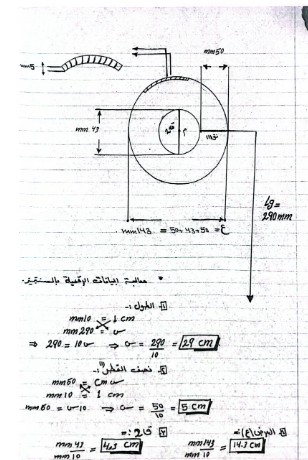 mm50
mm5
mm 43
م
نق
Lg=
290mm
mm143 = 50+43+50 = ع
• معالجة البيانات الرقمية بالسنتيمتر
1 الطول:-
mm10 = 1 cm
mm290 = س
⇒ 290 = 10 س ⇒ س = 290/10 = 29 cm
2 نصف القطر:-
mm50 = cm س
mm10 = 1 cm
mm50 = س10 ⇒ س = 50/10 = 5 cm
3 العرض(ع):-
mm143/mm10 = 14.3 cm
mm43/mm10 = 4.3 cm